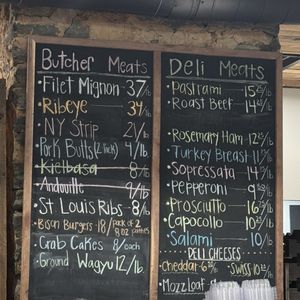 Butcher Meats
Filet Mignon 37/lb
Ribeye 34/lb
NY Strip 21/lb
Pork Butts (2 Pack) 4/lb
Kielbasa 8/lb
Andouille 9/lb
St Louis Ribs 8/lb
Bison Burgers 18/pack of 2
8 oz patties
Crab Cakes 8/each
Ground Wagyu 12/lb
Deli Meats
Pastrami
Roast Beef
Rosemary Ham
Turkey Breast
Sopressata
Pepperoni
Prosciutto
Capocollo
Salami 10/lb
DELI CHEESES
Cheddar
Swiss
Mozz Loaf